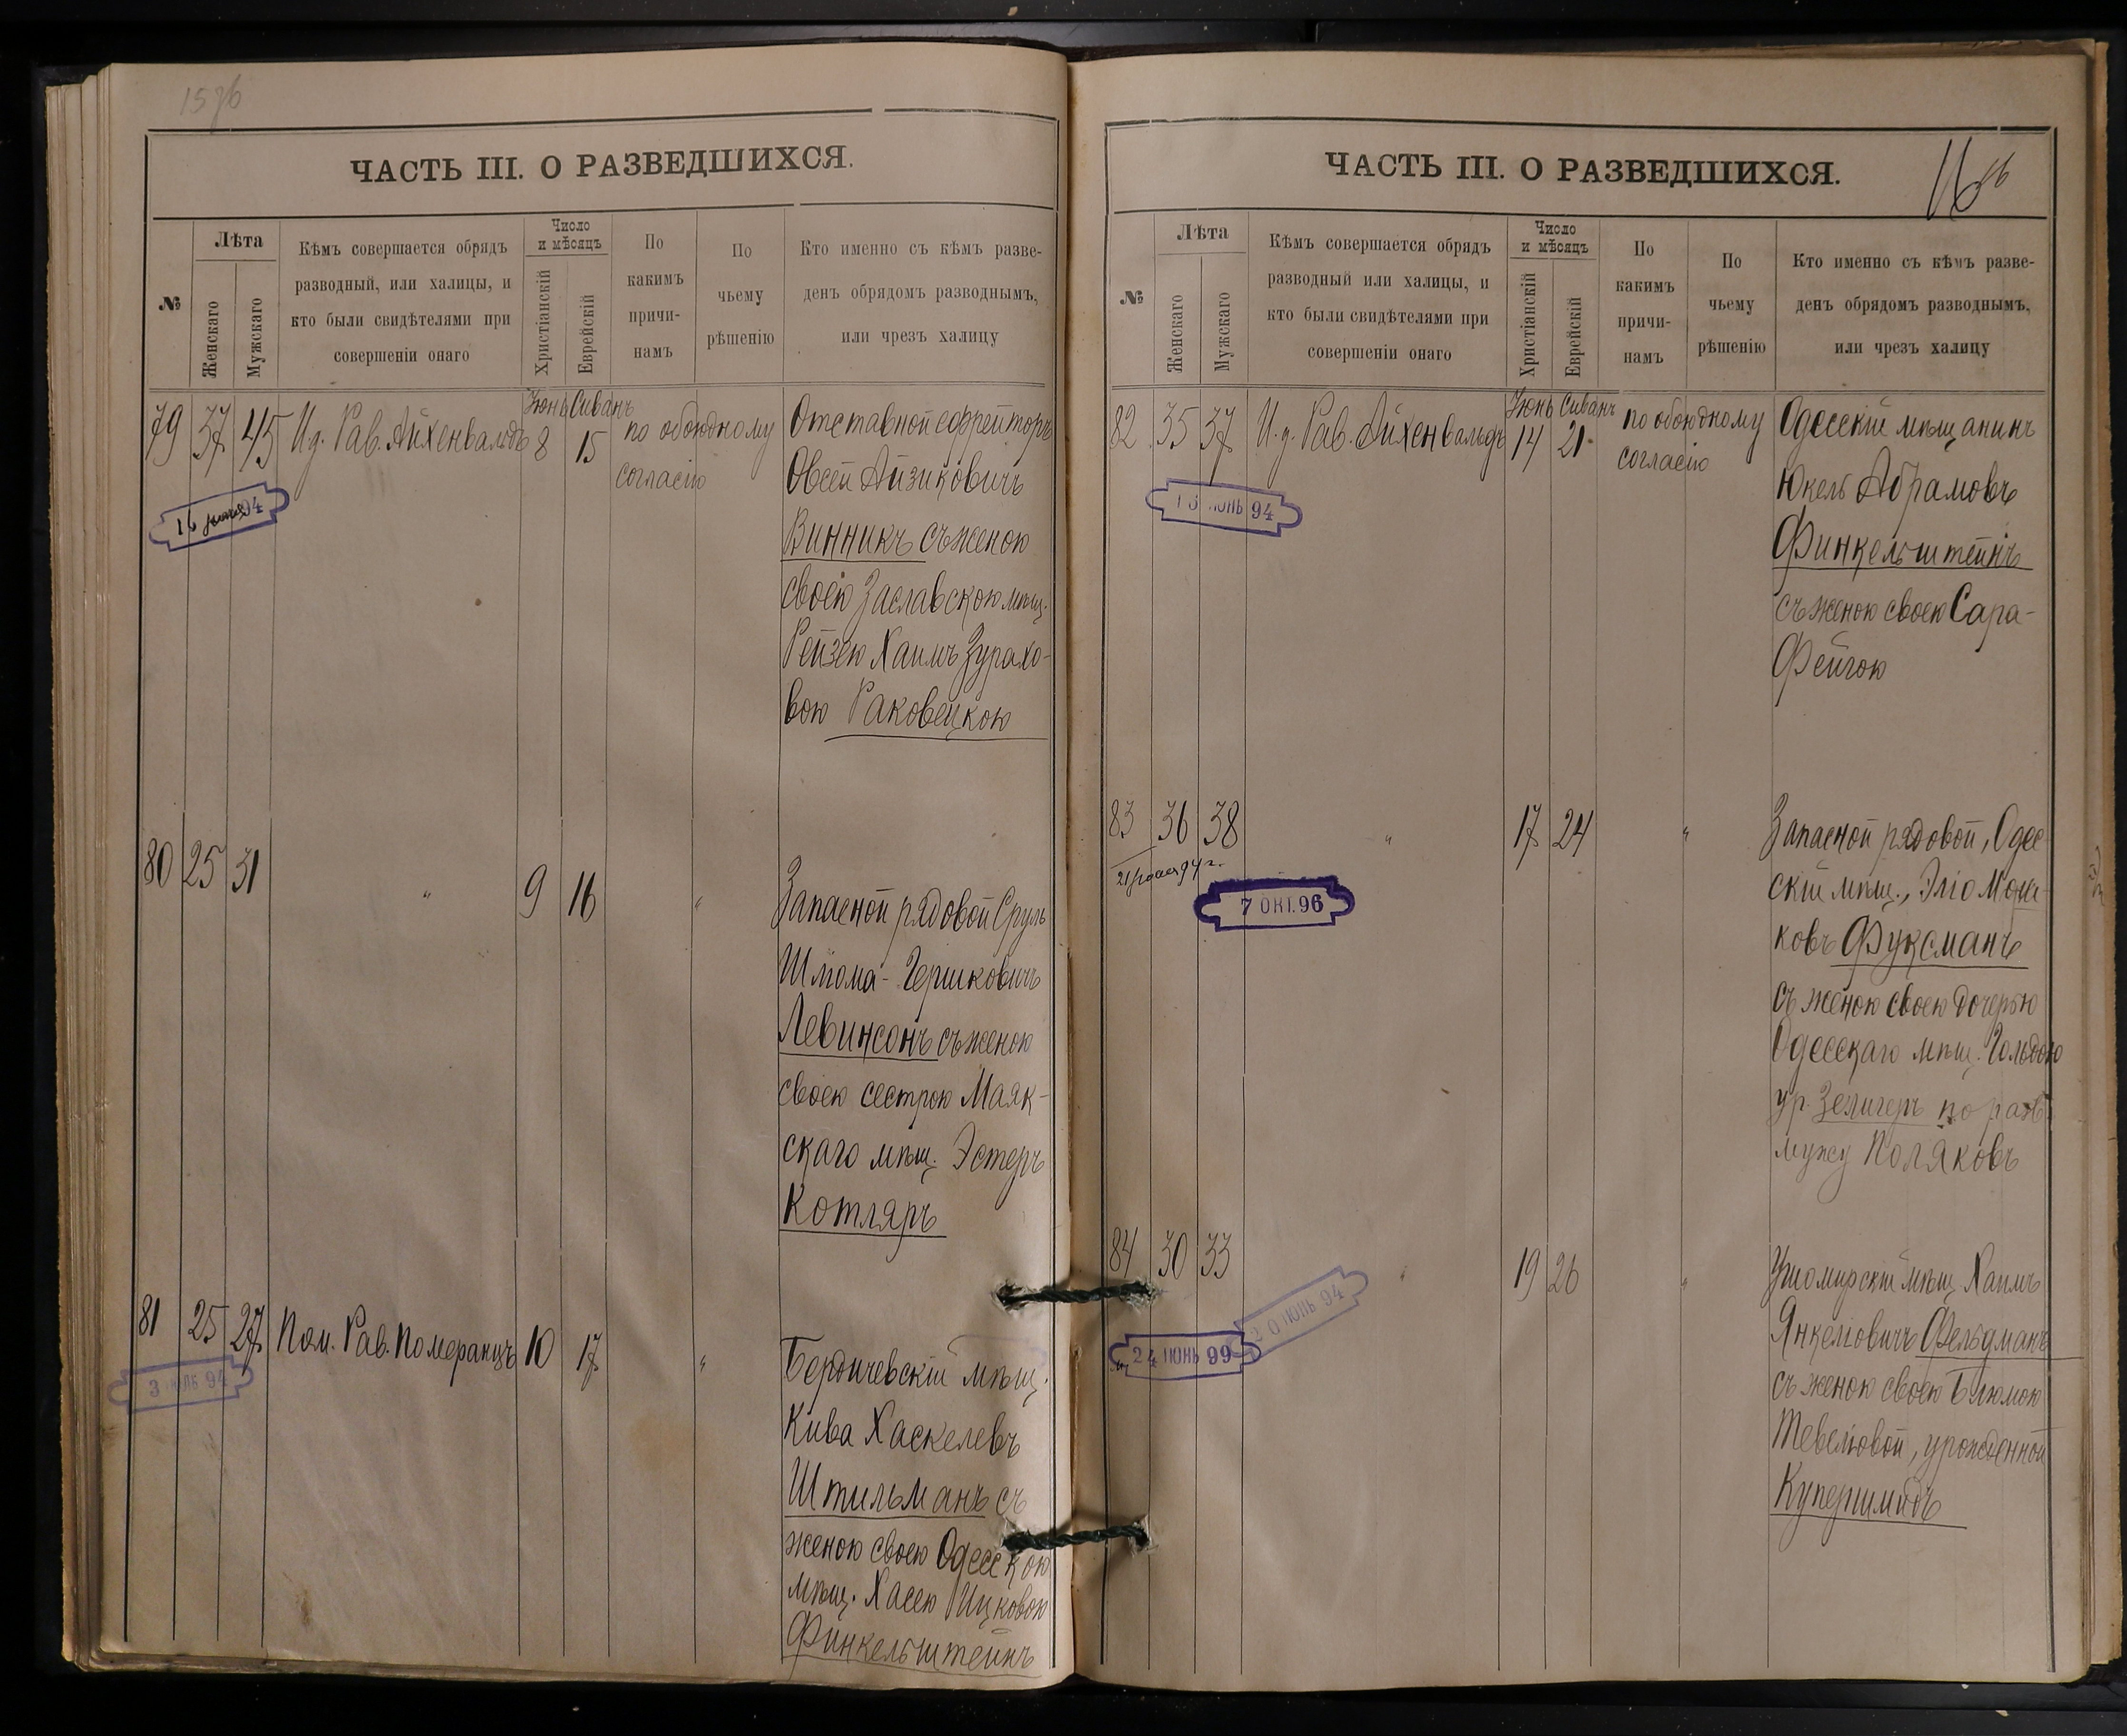 ЧАСТЬ III. О РАЗВЕДШИХСЯ.
№
Лѣта
Женскаго
Мужскаго
Кѣмъ совершается обрядъ
разводный, или халицы, и
кто были свидѣтелями при
совершеніи онаго
Число
и мѣсяцъ
Христіанскій
Еврейскій
По
какимъ
причи-
намъ
По
чьему
рѣшенію
Кто именно съ кѣмъ разве-
денъ обрядомъ разводнымъ,
или чрезъ халицу
Іюнь Сиванъ
79 37 45 И.д. Рав. Айхенвальдъ 8 15 по обоюдному
согласію
Отставной ефрейторъ
Овсей Айзиковичъ
Винникъ съ женою
своею Заславскою мѣщ.
Рейзею Хаимъ Зурахо-
вою Раковецкою
16 94
80 25 31 " 9 16 "
Запасной рядовой Сруль
Шлома-Гершковичъ
Левинсонъ съ женою
своею сестрою Маяк-
скаго мѣщ. Эстеръ
Котляръ
81 25 27 Пом. Рав. Померанцъ 10 17 "
3 ІЮЛЬ 94
Бердичевскій мѣщ.
Кива Хаскелевъ
Штильманъ съ
женою своею Одесскою
мѣщ. Хасею Ицковою
Финкельштейнъ
ЧАСТЬ III. О РАЗВЕДШИХСЯ.
16 16
№
Лѣта
Женскаго
Мужскаго
Кѣмъ совершается обрядъ
разводный или халицы, и
кто были свидѣтелями при
совершеніи онаго
Число
и мѣсяцъ
Христіанскій
Еврейскій
По
какимъ
причи-
намъ
По
чьему
рѣшенію
Кто именно съ кѣмъ разве-
денъ обрядомъ разводнымъ,
или чрезъ халицу
Іюнь Сиванъ
82 35 37 И.д. Рав. Айхенвальдъ 14 21 по обоюдному
согласію
ІЮНЬ 94
Одесскій мѣщанинъ
Юкель Абрамовъ
Финкельштейнъ
съ женою своею Сара-
Фейгою
83 36 38 " 17 24 "
94 г.
7 ОКТ. 96
Запасной рядовой, Одес-
скій мѣщ., Эліо
ковъ Фуксманъ
съ женою своею дочерью
Одесскаго мѣщ. Гольдою
ур. Зелигеръ по разв.
мужу Поляковъ
84 30 33 " 19 26 "
20 ІЮНЬ 94
24 ІЮНЬ 99
Ушомирскій мѣщ. Хаимъ
Янкеліовичъ Фельдманъ
съ женою своею Блюмою
Тевеліовой, урожденной
Купершмидъ